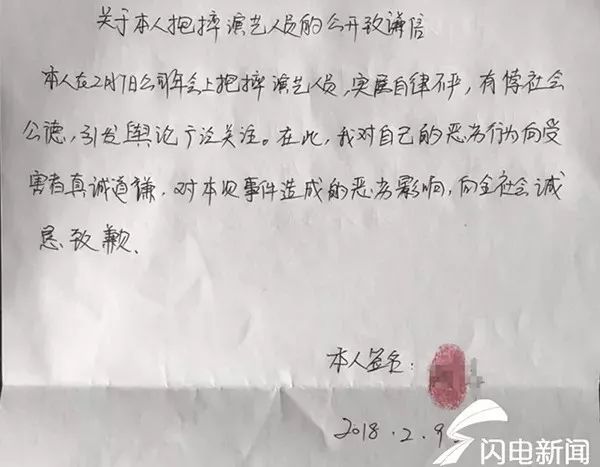 关于本人抱摔演艺人员的公开致谦信
本人在2月7日公司年会上抱摔演艺人员,实属自律不严,有悖社会
公德,引发舆论广泛关注。在此,我对自己的恶劣行为向受
害者真诚道谦,对本次事件造成的恶劣影响,向全社会诚
恳致歉.
本人签名:
2018.2.9
闪电新闻